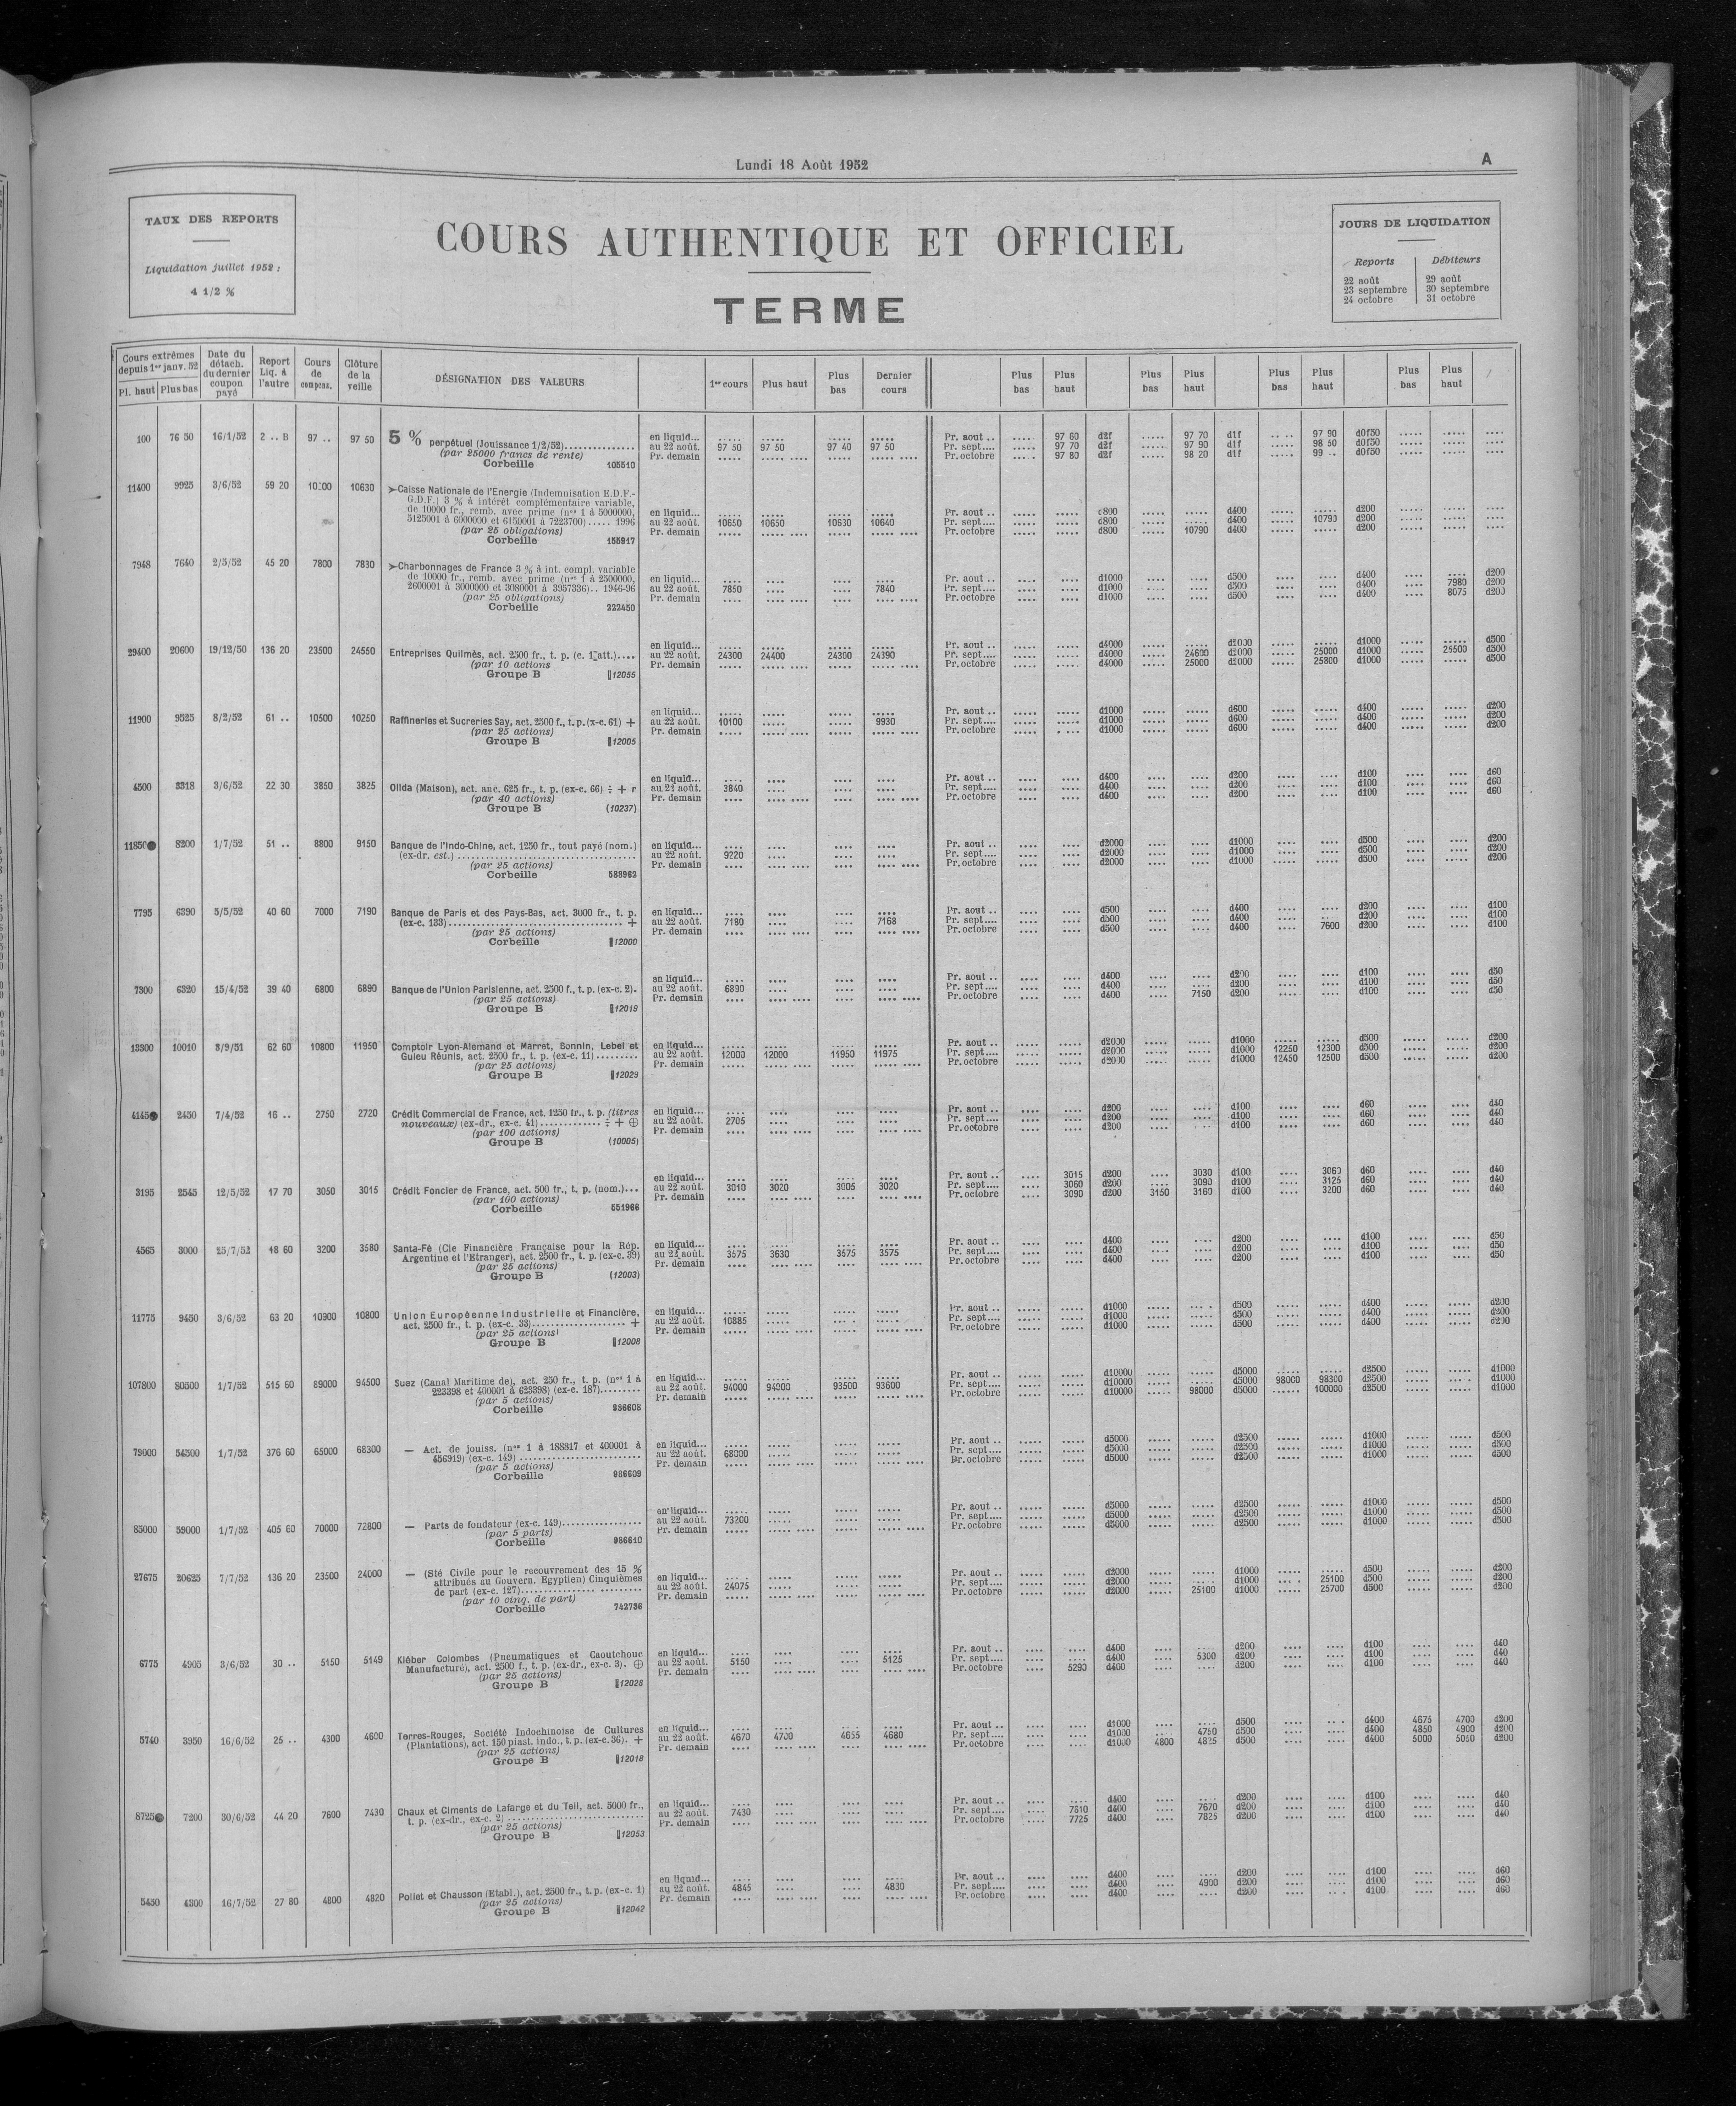 Lundi 18 Août 1952
A
TAUX DES REPORTS
Liquidation juillet 1952 :
4 1/2 %
COURS AUTHENTIQUE ET OFFICIEL
TERME
JOURS DE LIQUIDATION
Reports Débiteurs
22 août 29 août
23 septembre 30 septembre
24 octobre 31 octobre
Cours extrêmes depuis 1er janv. 52 Pl. haut Plus bas Date du détach. du dernier coupon payé Report Liq. à l'autre Cours de compens. Clôture de la veille DÉSIGNATION DES VALEURS 1er cours Plus haut Plus bas Dernier cours Plus bas Plus haut Plus bas Plus haut Plus bas Plus haut Plus bas Plus haut
100 76 50 16/1/52 2 .. B 97 .. 97 50 5 % perpétuel (Jouissance 1/2/52)
(par 25000 francs de rente)
Corbeille 105510
en liquid... Pr. aout .. 97 60 d2f 97 70 d1f 97 90 d0f50
au 22 août. 97 50 97 50 97 40 97 50 Pr. sept.... 97 70 d2f 97 90 d1f 98 50 d0f50
Pr. demain Pr. octobre 97 80 d2f 98 20 d1f 99 .. d0f50
11400 9925 3/6/52 59 20 10630 ➢Caisse Nationale de l'Energie (Indemnisation E.D.F.-
G.D.F.) 3 % à intérêt complémentaire variable,
de 10000 fr., remb. avec prime (nos 1 à 5000000,
5125001 à 6000000 et 6150001 à 7223700)..... 1996
(par 25 obligations)
Corbeille 155917
en liquid... Pr. aout .. d800 d400 d200
au 22 août. 10650 10650 10630 10640 Pr. sept.... d800 d400 10790 d200
Pr. demain Pr. octobre d800 10790 d400 d200
7948 7640 2/5/52 45 20 7800 7830 ➢Charbonnages de France 3 % à int. compl. variable
de 10000 fr., remb. avec prime (nos 1 à 2500000,
2600001 à 3000000 et 3080001 à 3957336).. 1946-96
(par 25 obligations)
Corbeille 222450
en liquid... Pr. aout .. d1000 d500 d400 d200
au 22 août. 7850 7840 Pr. sept.... d1000 d500 d400 7980 d200
Pr. demain Pr. octobre d1000 d500 d400 8075 d200
29400 20600 19/12/50 136 20 23500 24550 Entreprises Quilmès, act. 2500 fr., t. p. (c. 1 att.)....
(par 10 actions
Groupe B 12055
en liquid... Pr. aout .. d4000 d2000 d1000 d500
au 22 août. 24300 24400 24300 24390 Pr. sept.... d4000 24600 d2000 25000 d1000 25500 d500
Pr. demain Pr. octobre d4000 25000 d2000 25800 d1000 d500
11900 9525 8/2/52 61 .. 10500 10250 Raffineries et Sucreries Say, act. 2500 f., t. p. (x-c. 61) +
(par 25 actions)
Groupe B 12005
en liquid... Pr. aout .. d1000 d600 d400 d200
au 22 août. 10100 9930 Pr. sept.... d1000 d600 d400 d200
Pr. demain Pr. octobre d1000 d600 d400 d200
4500 3318 3/6/52 22 30 3850 3825 Olida (Maison), act. anc. 625 fr., t. p. (ex-c. 66) ÷ + r
(par 40 actions)
Groupe B (10237)
en liquid... Pr. aout .. d400 d200 d100 d60
au 22 août. 3840 Pr. sept.... d400 d200 d100 d60
Pr. demain Pr. octobre d400 d200 d100 d60
11850● 8200 1/7/52 51 .. 8800 9150 Banque de l'Indo-Chine, act. 1250 fr., tout payé (nom.)
(ex-dr. est.)
(par 25 actions)
Corbeille 588963
en liquid... Pr. aout .. d2000 d1000 d500 d200
au 22 août. 9220 Pr. sept.... d2000 d1000 d500 d200
Pr. demain Pr. octobre d2000 d1000 d500 d200
7795 6390 5/5/52 40 60 7000 7190 Banque de Paris et des Pays-Bas, act. 3000 fr., t. p.
(ex-c. 133) +
(par 25 actions)
Corbeille 12000
en liquid... Pr. aout .. d500 d400 d200 d100
au 22 août. 7180 7168 Pr. sept.... d500 d400 d200 d100
Pr. demain Pr. octobre d500 d400 7600 d200 d100
7300 6320 15/4/52 39 40 6800 6890 Banque de l'Union Parisienne, act. 2500 f., t. p. (ex-c. 2).
(par 25 actions)
Groupe B 12019
en liquid... Pr. aout .. d400 d200 d100 d50
au 22 août. 6890 Pr. sept.... d400 d200 d100 d50
Pr. demain Pr. octobre d400 7150 d200 d100 d50
13300 10010 8/9/51 62 60 10800 11950 Comptoir Lyon-Alemand et Marret, Bonnin, Lebel et
Guieu Réunis, act. 2500 fr., t. p. (ex-c. 11)
(par 25 actions)
Groupe B 12029
en liquid... Pr. aout .. d2000 d1000 d500 d200
au 22 août. 12000 12000 11950 11975 Pr. sept.... d2000 d1000 12250 12300 d500 d200
Pr. demain Pr. octobre d2000 d1000 12450 12500 d500 d200
4145● 2450 7/4/52 16 .. 2750 2720 Crédit Commercial de France, act. 1250 fr., t. p. (titres
nouveaux) (ex-dr., ex-c. 41) ÷ + ⊕
(par 100 actions)
Groupe B (10005)
en liquid... Pr. aout .. d200 d100 d60 d40
au 22 août. 2705 Pr. sept.... d200 d100 d60 d40
Pr. demain Pr. octobre d200 d100 d60 d40
3195 2545 12/5/52 17 70 3050 3015 Crédit Foncier de France, act. 500 fr., t. p. (nom.)...
(par 100 actions)
Corbeille 551966
en liquid... Pr. aout .. 3015 d200 3030 d100 3060 d60 d40
au 22 août. 3010 3020 3005 3020 Pr. sept.... 3060 d200 3090 d100 3125 d60 d40
Pr. demain Pr. octobre 3090 d200 3150 3160 d100 3200 d60 d40
4565 3000 25/7/52 48 60 3200 3580 Santa-Fé (Cie Financière Française pour la Rép.
Argentine et l'Etranger), act. 2500 fr., t. p. (ex-c. 39)
(par 25 actions)
Groupe B (12003)
en liquid... Pr. aout .. d400 d200 d100 d50
au 22 août. 3575 3630 3575 3575 Pr. sept.... d400 d200 d100 d50
Pr. demain Pr. octobre d400 d200 d100 d50
11775 9450 3/6/52 63 20 10900 10800 Union Européenne Industrielle et Financière,
act. 2500 fr., t. p. (ex-c. 33) +
(par 25 actions)
Groupe B 12008
en liquid... Pr. aout .. d1000 d500 d400 d200
au 22 août. 10885 Pr. sept.... d1000 d500 d400 d200
Pr. demain Pr. octobre d1000 d500 d400 d200
107800 80500 1/7/52 515 60 89000 94500 Suez (Canal Maritime de), act. 250 fr., t. p. (nos 1 à
223398 et 400001 à 623398) (ex-c. 187)
(par 5 actions)
Corbeille 986608
en liquid... Pr. aout .. d10000 d5000 d2500 d1000
au 22 août. 94000 94000 93500 93600 Pr. sept.... d10000 d5000 98000 98300 d2500 d1000
Pr. demain Pr. octobre d10000 98000 d5000 100000 d2500 d1000
79000 54500 1/7/52 376 60 65000 68300 — Act. de jouiss. (nos 1 à 188817 et 400001 à
456919) (ex-c. 149)
(par 5 actions)
Corbeille 986609
en liquid... Pr. aout .. d5000 d2500 d1000 d500
au 22 août. 68000 Pr. sept.... d5000 d2500 d1000 d500
Pr. demain Pr. octobre d5000 d2500 d1000 d500
85000 59000 1/7/52 405 60 70000 72800 — Parts de fondateur (ex-c. 149)
(par 5 parts)
Corbeille 986610
en liquid... Pr. aout .. d5000 d2500 d1000 d500
au 22 août. 73200 Pr. sept.... d5000 d2500 d1000 d500
Pr. demain Pr. octobre d5000 d2500 d1000 d500
27675 20625 7/7/52 136 20 23500 24000 — (Sté Civile pour le recouvrement des 15 %
attribués au Gouvern. Egyptien) Cinquièmes
de part (ex-c. 127)
(par 10 cinq. de part)
Corbeille 742736
en liquid... Pr. aout .. d2000 d1000 d500 d200
au 22 août. 24075 Pr. sept.... d2000 d1000 25100 d500 d200
Pr. demain Pr. octobre d2000 25100 d1000 25700 d500 d200
6775 4905 3/6/52 30 .. 5150 5149 Kléber Colombes (Pneumatiques et Caoutchouc
Manufacturé), act. 2500 f., t. p. (ex-dr., ex-c. 3). ⊕
(par 25 actions)
Groupe B 12028
en liquid... Pr. aout .. d400 d200 d100 d40
au 22 août. 5150 5125 Pr. sept.... d400 5300 d200 d100 d40
Pr. demain Pr. octobre 5290 d400 d200 d100 d40
5740 3950 16/6/52 25 .. 4300 4690 Terres-Rouges, Société Indochinoise de Cultures
(Plantations), act. 150 piast. indo., t. p. (ex-c. 36). +
(par 25 actions)
Groupe B 12018
en liquid... Pr. aout .. d1000 d500 d400 4675 4700 d200
au 22 août. 4670 4700 4655 4680 Pr. sept.... d1000 4750 d500 d400 4850 4900 d200
Pr. demain Pr. octobre d1000 4800 4825 d500 d400 5000 5050 d200
8725● 7200 30/6/52 44 20 7600 7430 Chaux et Ciments de Lafarge et du Teil, act. 5000 fr.,
t. p. (ex-dr., ex-c. 2)
(par 25 actions)
Groupe B 12053
en liquid... Pr. aout .. d400 d200 d100 d40
au 22 août. 7430 Pr. sept.... 7610 d400 7670 d200 d100 d40
Pr. demain Pr. octobre 7725 d400 7825 d200 d100 d40
5450 4300 16/7/52 27 80 4800 4820 Poliet et Chausson (Etabl.), act. 2500 fr., t. p. (ex-c. 1)
(par 25 actions)
Groupe B 12042
en liquid... Pr. aout .. d400 d200 d100 d60
au 22 août. 4845 4830 Pr. sept.... d400 4900 d200 d100 d60
Pr. demain Pr. octobre d400 d200 d100 d60